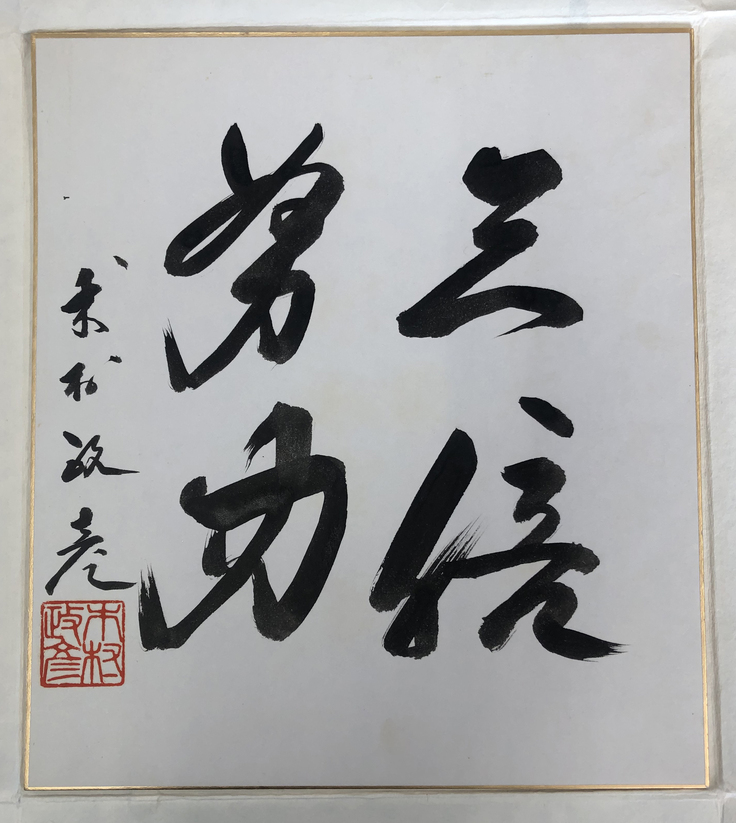 三倍
努力
木村政彦
木村
政彦